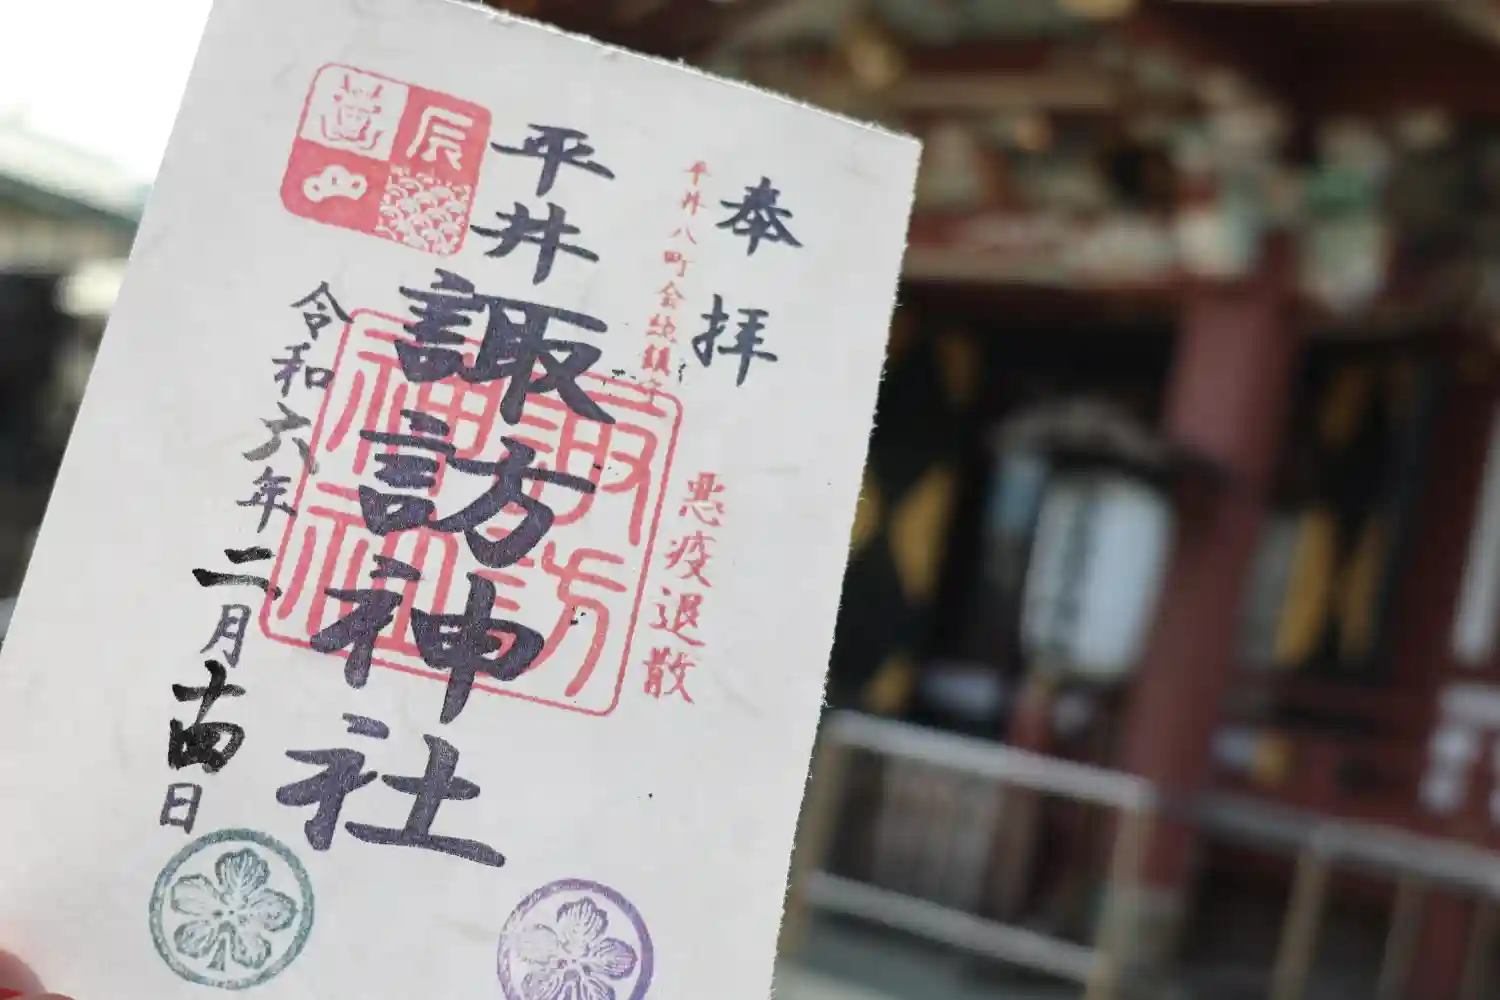 奉拝
平井八町会総鎮守
悪疫退散
平井
諏訪神社
諏訪
神社
辰
令和六年二月十四日